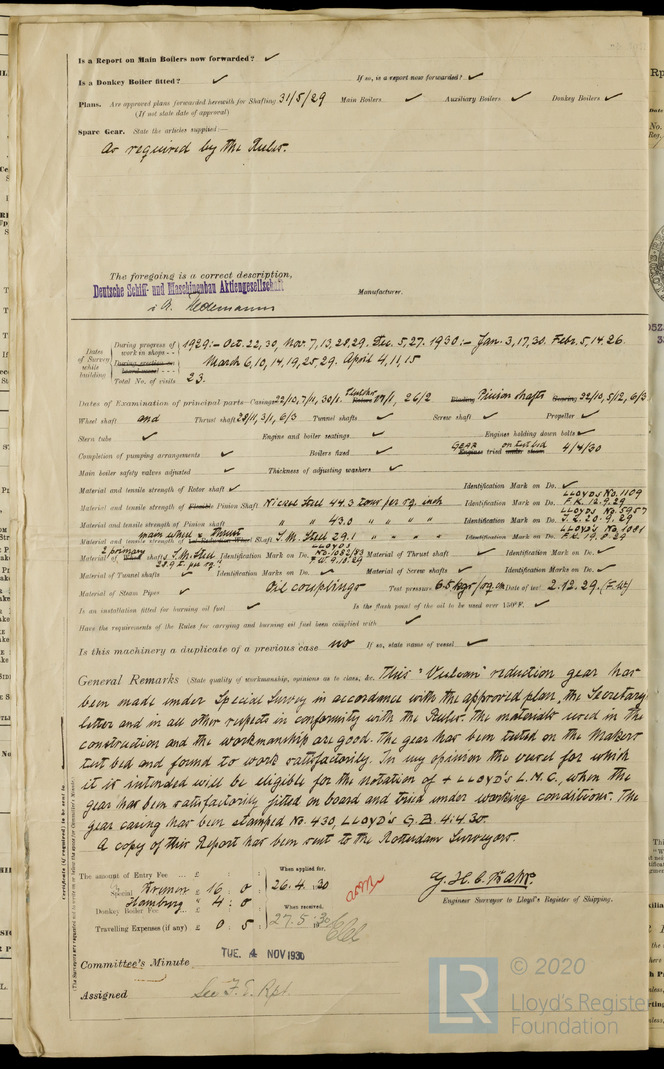 Is a Report on Main Boilers now forwarded? ✓
Is a Donkey Boiler fitted? ✓ If so, is a report now forwarded? ✓
Plans. Are approved plans forwarded herewith for Shafting 31/5/29 Main Boilers ✓ Auxiliary Boilers ✓ Donkey Boilers ✓
(If not state date of approval)
Spare Gear. State the articles supplied:—
As required by the Rules.
The foregoing is a correct description,
Deutsche Schiff- und Maschinenbau Aktiengesellschaft
Manufacturer.
Dates of Survey while building
During progress of work in shops - - 1929:- Oct. 22, 30, Nov. 7, 13, 28, 29. Dec. 5, 27. 1930:- Jan. 3, 17, 30. Feb. 5, 14, 26.
March 6, 10, 14, 19, 25, 29. April 4, 11, 15
Total No. of visits 23.
Dates of Examination of principal parts—Casings 22/10, 7/11, 30/1. 26/2 Pinion shafts 6/3
Wheel shaft and Thrust shaft 28/11, 3/1, 6/3 Tunnel shafts ✓ Screw shaft ✓ Propeller ✓
Stern tube ✓ Engine and boiler seatings ✓ Engines holding down bolts ✓
Completion of pumping arrangements ✓ Boilers fixed ✓ GEAR Engines tried on test bed 4/4/30
Main boiler safety valves adjusted ✓ Thickness of adjusting washers ✓
Material and tensile strength of Rotor shaft ✓ Identification Mark on Do. ✓
Material and tensile strength of Flexible Pinion Shaft Nickel Steel 44.3 tons per sq. inch Identification Mark on Do. LLOYDS No. 1109 F.K. 12.9.29
Material and tensile strength of Pinion shaft " " 43.0 " " " " Identification Mark on Do. LLOYDS No. 5957 20.9.29
Material and tensile strength of main wheel & Thrust Shaft S.M. Steel 29.1 " " " " Identification Mark on Do. LLOYD'S No. 1081 F.K. 19.8.29
Material of 2 primary shafts S.M. Steel 28.9 T. per sq." Identification Marks on Do. LLOYDS No. 1082/83 Material of Thrust shaft ✓ Identification Mark on Do. ✓
Material of Tunnel shafts ✓ Identification Marks on Do. ✓ Material of Screw shafts ✓ Identification Marks on Do. ✓
Material of Steam Pipes ✓ Oil couplings Test pressure 6.5 kgs/sq. cm Date of test 2.12.29.
Is an installation fitted for burning oil fuel ✓ Is the flash point of the oil to be used over 150°F. ✓
Have the requirements of the Rules for carrying and burning oil fuel been complied with ✓
Is this machinery a duplicate of a previous case no If so, state name of vessel ✓
General Remarks (State quality of workmanship, opinions as to class, &c. This "Vulcan" reduction gear has
been made under Special Survey in accordance with the approved plan, the Secretary
letter and in all other respects in conformity with the Rules. The materials used in the
construction and the workmanship are good. The gear has been tested on the Makers
test bed and found to work satisfactorily. In my opinion the vessel for which
it is intended will be eligible for the notation of + LLOYD'S L.M.C., when the
gear has been satisfactorily fitted on board and tried under working conditions. The
gear casing has been stamped No. 430, LLOYD'S G.B. 4.4.30.
A copy of this Report has been sent to the Rotterdam Surveyors.
Certificate (if required) to be sent to
(The Surveyors are requested not to write on or below the space for Committee's Minute.)
The amount of Entry Fee ... £ : : When applied for,
Special Bremen £ 16 : 0 : 26.4.30
Hamburg " 4 : 0
Donkey Boiler Fee ... £ : : When received,
Travelling Expenses (if any) £ 0 : 5 : 27.5.30
Engineer Surveyor to Lloyd's Register of Shipping.
Committee's Minute TUE. 4 NOV 1930
Assigned See F.E. Rpt.
LR
© 2020
Lloyd's Register
Foundation